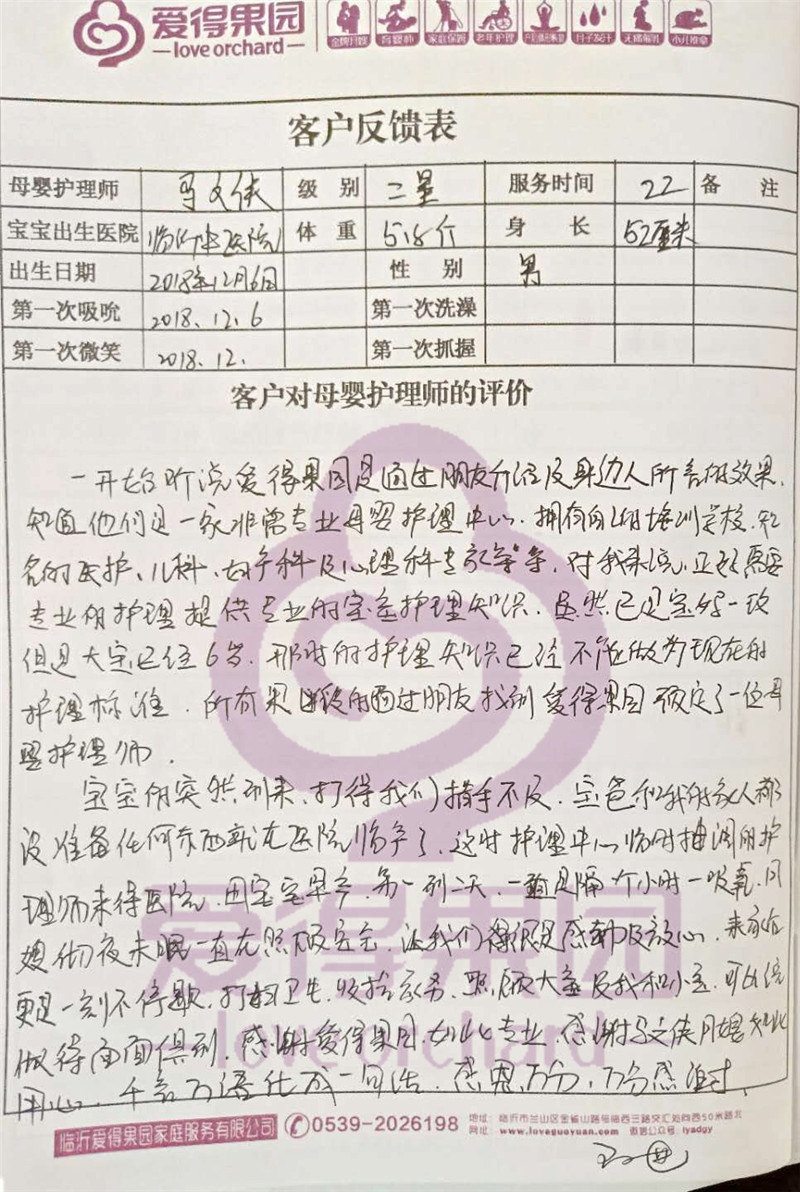 爱得果园
love orchard
金牌月嫂 育婴师 家庭保姆 老年护理 产后康复 月子发汗 无痛催乳 小儿推拿
客户反馈表
母婴护理师 马文侠 级别 二星 服务时间 22 备注
宝宝出生医院 临沂 医院 体重 5.8斤 身长 52厘米
出生日期 2018年12月6日 性别 男
第一次吸吮 2018.12.6 第一次洗澡
第一次微笑 2018.12. 第一次抓握
客户对母婴护理师的评价
一开始听说爱得果园是通过朋友介绍及身边人所看的效果,
知道他们是一家非常专业母婴护理中心.拥有自己的培训学校.知
名的医护、儿科、妇产科及心理科专家等等.对我来说,正好需要
专业的护理提供专业的宝宝护理知识.虽然已是宝妈一枚
但是大宝已经6岁.那时的护理知识已经不能做为现在的
护理标准.所有果断的通过朋友找到爱得果园预定了一位母
婴护理师.
宝宝的突然到来、打得我们措手不及.宝爸和我的家人都
没准备任何东西就在医院临产了.这时护理中心临时抽调的护
理师来得医院.因宝宝早产.第一到二天.一直是隔个小时一吸氧.月
嫂彻夜未眠一直在照顾宝宝.让我们得很是感动及放心.来家后
更是一刻不停歇.打扫卫生.收拾家务.照顾大宝及我和小宝.可以说
做得面面俱到.感谢爱得果园.如此专业.感谢马文侠月嫂如此
用心.千言万语化成一句话.感恩万分,万分感谢!
临沂爱得果园家庭服务有限公司 0539-2026198
地址:临沂市兰山区金雀山路与临西三路交汇处向西50米路北
网址:www.loveguoyuan.com 微信公众号:lyadgy